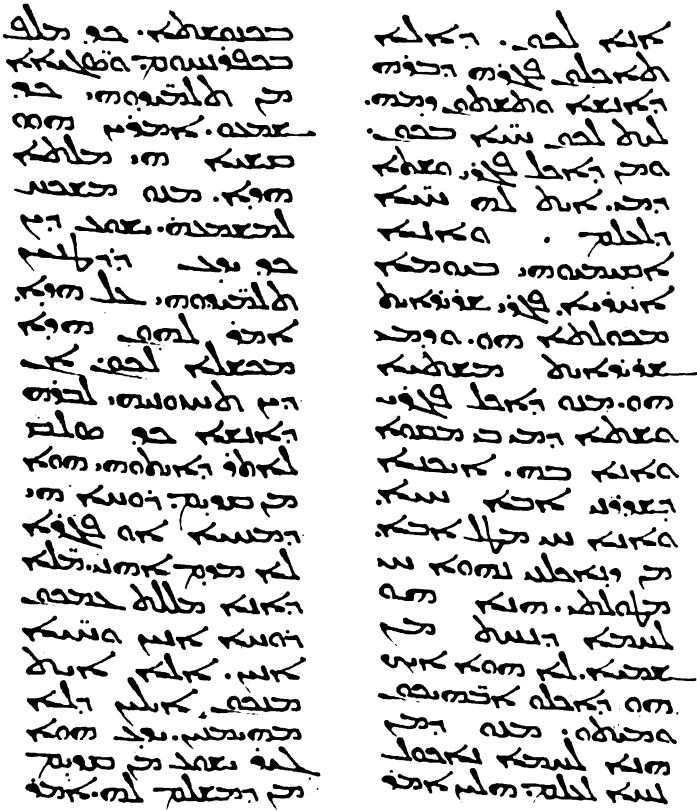 ܐܢܐ ܠܟܘܢ. ܕܐܠܐ
ܬܐܟܠܘܢ ܦܓܪܗ ܕܒܪܗ
ܕܐܢܫܐ ܘܬܫܬܘܢ ܕܡܗ.
ܠܝܬ ܠܟܘܢ ܚܝ̈ܐ ܒܟܘܢ.
ܘܡܢ ܕܐܟܠ ܦܓܪܝ ܘܫܬܐ
ܕܡܝ. ܐܝܬ ܠܗ ܚܝ̈ܐ
ܕܠܥܠܡ . ܘܐܢܐ
ܐܩܝܡܝܘܗܝ ܒܝܘܡܐ
ܐܚܪܝܐ. ܦܓܪܝ ܫܪܝܪܐܝܬ
ܡܐܟܘܠܬܐ ܗܘ. ܘܕܡܝ
ܫܪܝܪܐܝܬ ܡܫܬܝܐ
ܗܘ. ܡܢܘ ܕܐܟܠ ܦܓܪܝ
ܘܫܬܐ ܕܡܝ ܒܝ ܡܩܘܐ
ܘܐܢܐ ܒܗ. ܐܝܟܢܐ
ܕܫܕܪܢܝ ܐܒܐ ܚܝܐ.
ܘܐܢܐ ܚܝ ܡܛܠ ܐܒܐ.
ܡܢ ܕܢܐܟܠܢܝ ܢܗܘܐ ܚܝ
ܡܛܠܬܝ. ܗܢܐ ܗܘ
ܠܚܡܐ ܕܢܚܬ ܡܢ
ܫܡܝܐ. ܠܐ ܗܘܐ ܐܝܟ
ܗܘ ܕܐܟܠܘ ܐܒ̈ܗܝܟܘܢ
ܘܡܝܬܘ. ܡܢܘ ܕܡܢ
ܗܢܐ ܠܚܡܐ ܢܐܟܘܠ
ܢܚܐ ܠܥܠܡ. ܗܠܝܢ ܐܡܪ
ܒܟܢܘܫܬܐ. ܟܕ ܡܠܦ
ܒܟܦܪܢܚܘܡ. ܘܣܓܝ̈ܐܐ
ܡܢ ܬܠܡܝ̈ܕܘܗܝ ܟܕ
ܫܡܥܘ. ܐܡܪܝܢ ܗܘܘ
ܩܫܝܐ ܗܝ ܡܠܬܐ
ܗܕܐ. ܡܢܘ ܡܫܟܚ
ܠܡܫܡܥܗ. ܝܫܘܥ ܕܝܢ
ܟܕ ܝܕܥ ܕܪܛܢܝܢ
ܬܠܡܝ̈ܕܘܗܝ ܥܠ ܗܕܐ.
ܐܡܪ ܠܗܘܢ ܗܕܐ
ܡܟܫܠܐ ܠܟܘܢ. ܐܢ
ܕܝܢ ܬܚܙܘܢܝܗܝ ܠܒܪܗ
ܕܐܢܫܐ ܟܕ ܣܠܩ
ܠܐܬܪ ܕܐܝܬܘܗܝ ܗܘܐ
ܡܢ ܩܕܝܡ. ܪܘܚܐ ܗܝ
ܕܡܚܝܐ ܐܘ ܦܓܪܐ
ܠܐ ܡܕܡ ܐܗܢܝ. ܡ̈ܠܐ
ܕܐܢܐ ܡܠܠܬ ܥܡܟܘܢ
ܪܘܚܐ ܐܢܝܢ ܘܚܝ̈ܐ
ܐܢܝܢ. ܐܠܐ ܐܝܬ
ܡܢܟܘܢ ܐܝܠܝܢ ܕܠܐ
ܡܗܝܡܢܝܢ. ܝܕܥ ܗܘܐ
ܓܝܪ ܝܫܘܥ ܡܢ ܩܕܝܡ
ܡܢ ܕܡܫܠܡ ܠܗ. ܘܐܡܪ